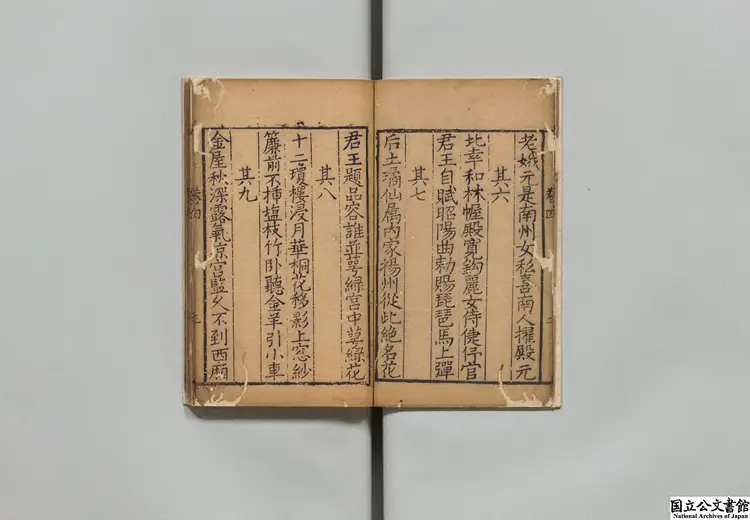 老娥元是南州女私喜南人擢殿元
其六
北幸和林幄殿寬鉤麗女侍倢伃官
君王自賦昭陽曲勑賜琵琶馬上彈
其七
后土璚仙属内家楊州從此絶名花
君王題品容誰並萼緑宫中萼緑花
其八
十二瓊樓浸月華桐花移影上窓紗
簾前不揷塩枝竹卧聽金羊引小車
其九
金屋秋深露氣凉宫監久不到西廂
卷四
国立公文書館
National Archives of Japan